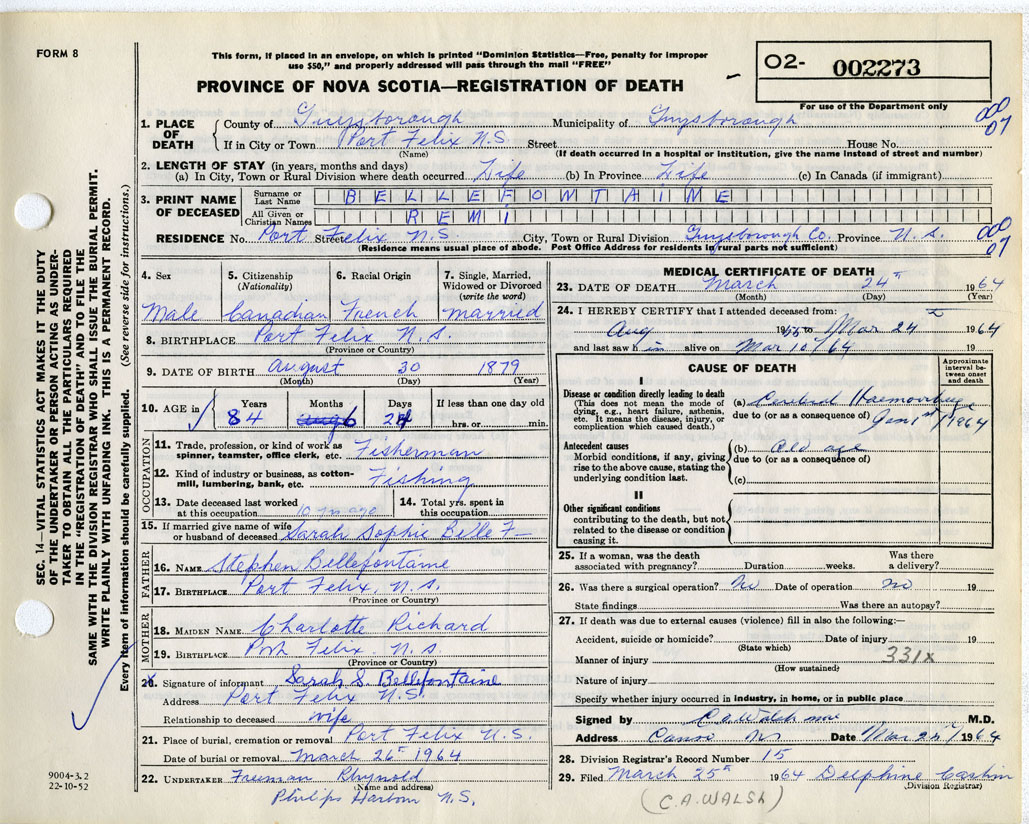 FORM 8
This form, if placed in an envelope, on which is printed "Dominion Statistics—Free, penalty for improper
use $50," and properly addressed will pass through the mail "FREE"
PROVINCE OF NOVA SCOTIA—REGISTRATION OF DEATH
02- 002273
For use of the Department only
1. PLACE OF DEATH
County of Guysborough Municipality of Guysborough
If in City or Town Port Felix N.S. Street House No.
(Name) (If death occurred in a hospital or institution, give the name instead of street and number)
000
07
2. LENGTH OF STAY (in years, months and days)
(a) In City, Town or Rural Division where death occurred Life (b) In Province Life (c) In Canada (if immigrant)
3. PRINT NAME OF DECEASED
Surname or Last Name BELLEFONTAINE
All Given or Christian Names REMI
RESIDENCE No. Port Street Felix N.S. City, Town or Rural Division Guysborough Co. Province N.S.
(Residence means usual place of abode. Post Office Address for residents in rural parts not sufficient)
000
07
4. Sex Male
5. Citizenship (Nationality) Canadian
6. Racial Origin French
7. Single, Married, Widowed or Divorced (write the word) married
8. BIRTHPLACE Port Felix N.S.
(Province or Country)
9. DATE OF BIRTH August 30 1879
(Month) (Day) (Year)
10. AGE in Years Months Days If less than one day old
84 6 24 hrs. or min.
OCCUPATION
11. Trade, profession, or kind of work as
spinner, teamster, office clerk, etc. Fisherman
12. Kind of industry or business, as cotton-
mill, lumbering, bank, etc. Fishing
13. Date deceased last worked
at this occupation 10 yrs ago
14. Total yrs. spent in
this occupation
15. If married give name of wife
or husband of deceased Sarah Sophie Belle F—
FATHER
16. NAME Stephen Bellefontaine
17. BIRTHPLACE Port Felix, N.S.
(Province or Country)
MOTHER
18. MAIDEN NAME Charlotte Richard
19. BIRTHPLACE Port Felix. N.S
(Province or Country)
20. Signature of informant Sarah S. Bellefontaine
Address Port Felix N.S.
Relationship to deceased wife
21. Place of burial, cremation or removal Port Felix N.S.
Date of burial or removal March 26th 1964
22. UNDERTAKER Freeman Rhynold
(Name and address)
Philips Harbour N.S.
MEDICAL CERTIFICATE OF DEATH
23. DATE OF DEATH March 24th 1964
(Month) (Day) (Year)
24. I HEREBY CERTIFY that I attended deceased from:
Aug to Mar 24 1964
and last saw him alive on Mar 10/64 19
CAUSE OF DEATH
Approximate interval between onset and death
I
Disease or condition directly leading to death
(This does not mean the mode of
dying, e.g., heart failure, asthenia,
etc. It means the disease, injury, or
complication which caused death.)
(a) Cerebral Haemorrhage
due to (or as a consequence of) Jan 1st/1964
Antecedent causes
Morbid conditions, if any, giving
rise to the above cause, stating the
underlying condition last.
(b) Old age
due to (or as a consequence of)
(c)
II
Other significant conditions
contributing to the death, but not
related to the disease or condition
causing it.
25. If a woman, was the death
associated with pregnancy? Duration weeks. Was there a delivery?
26. Was there a surgical operation? No Date of operation no 19
State findings Was there an autopsy?
27. If death was due to external causes (violence) fill in also the following:—
Accident, suicide or homicide? Date of injury 19
(State which)
331x
Manner of injury
(How sustained)
Nature of injury
Specify whether injury occurred in industry, in home, or in public place
Signed by C.A. Walsh M.D.
Address Canso NS Date Mar 24/1964
28. Division Registrar's Record Number 15
29. Filed March 25th 1964 Delphine Cashin
(Division Registrar)
(C.A. WALSH)
SEC. 14—VITAL STATISTICS ACT MAKES IT THE DUTY
OF THE UNDERTAKER OR PERSON ACTING AS UNDER-
TAKER TO OBTAIN ALL THE PARTICULARS REQUIRED
IN THE "REGISTRATION OF DEATH" AND TO FILE THE
SAME WITH THE DIVISION REGISTRAR WHO SHALL ISSUE THE BURIAL PERMIT.
WRITE PLAINLY WITH UNFADING INK. THIS IS A PERMANENT RECORD.
Every item of information should be carefully supplied. (See reverse side for instructions.)
9004-3.2
22-10-52